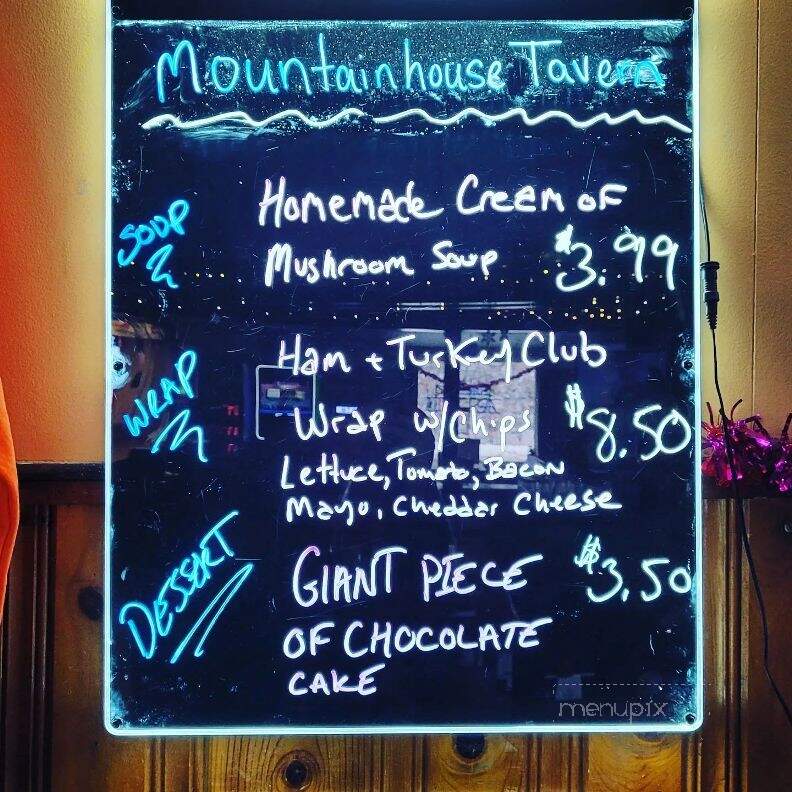 Mountainhouse Tavern
SOUP
Homemade Cream OF
Mushroom Soup $3.99
WRAP
Ham + Turkey Club
Wrap w/Chips $8.50
Lettuce, Tomato, Bacon
Mayo, Cheddar Cheese
DESSERT
GIANT PIECE $3.50
OF CHOCOLATE
CAKE
menupix